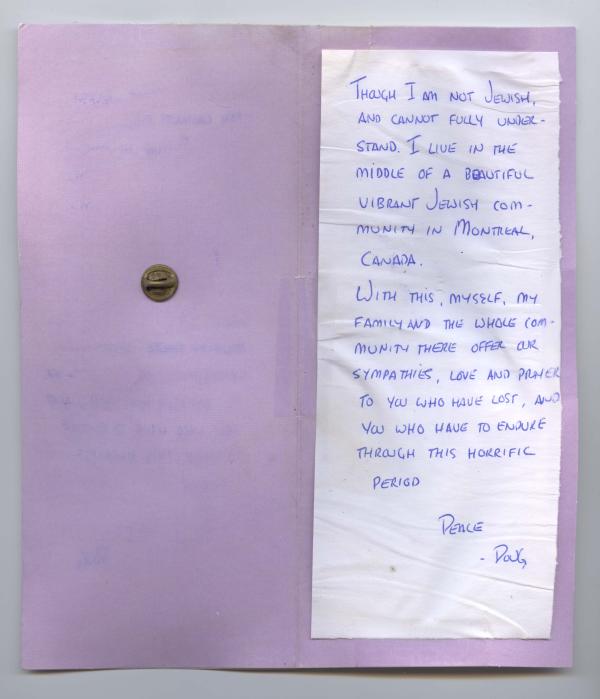 Though I am not Jewish,
and cannot fully under-
stand. I live in the
middle of a beautiful
vibrant Jewish com-
munity in Montreal,
Canada.
With this, myself, my
family and the whole com-
munity there offer our
sympathies, love and prayer
to you who have lost, and
you who have to endure
through this horrific
period
Peace
- Doug